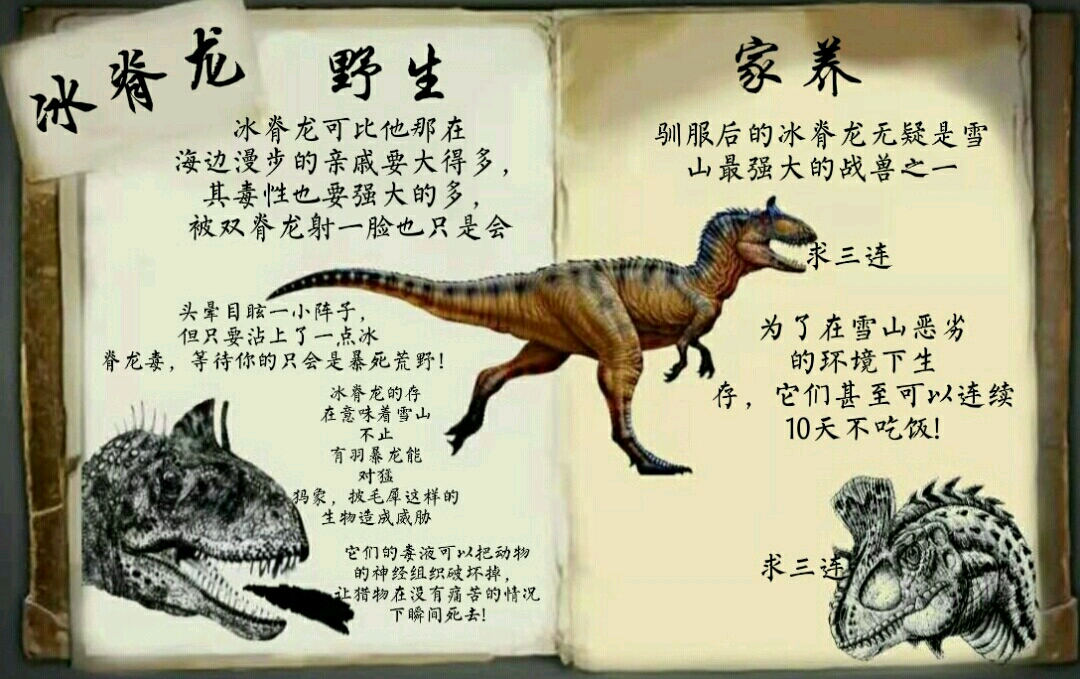 冰脊龙
野生
冰脊龙可比他那在
海边漫步的亲戚要大得多，
其毒性也要强大的多，
被双脊龙射一脸也只是会
头晕目眩一小阵子，
但只要沾上了一点冰
脊龙毒，等待你的只会是暴死荒野！
冰脊龙的存
在意味着雪山
不止
有羽暴龙能
对猛
犸象，披毛犀这样的
生物造成威胁
它们的毒液可以把动物
的神经组织破坏掉，
让猎物在没有痛苦的情况
下瞬间死去！
家养
驯服后的冰脊龙无疑是雪
山最强大的战兽之一
求三连
为了在雪山恶劣
的环境下生
存，它们甚至可以连续
10天不吃饭！
求三连